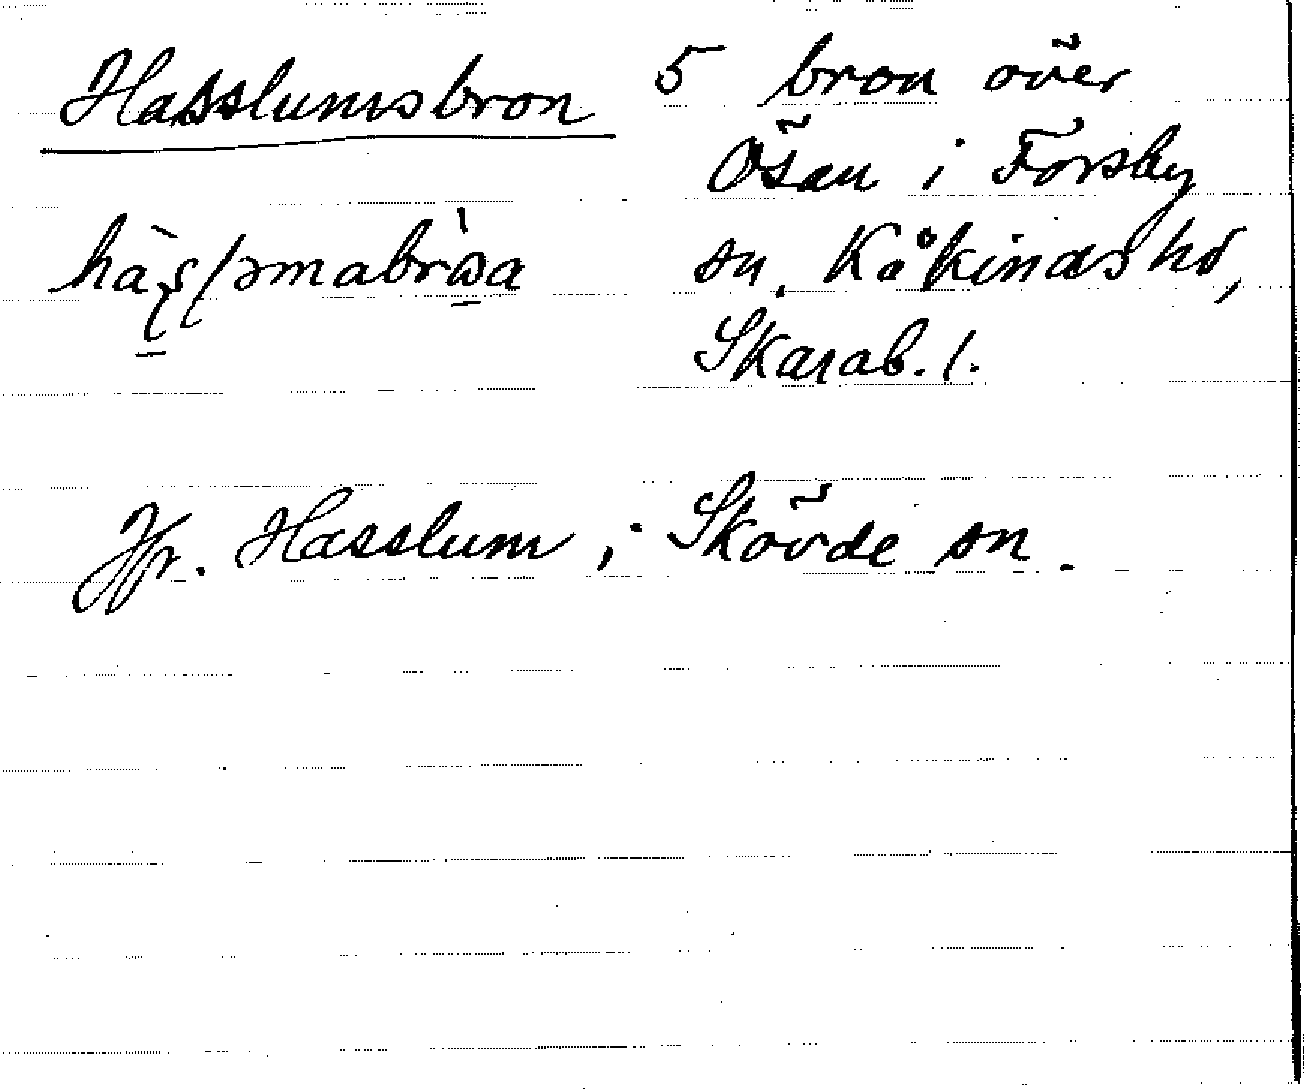 Hasslumsbron 5 bron över
Ösan i Forsby
sn. Kåkinds hd,
Skarab. l.
Jfr. Hasslum, i Skövde sn.